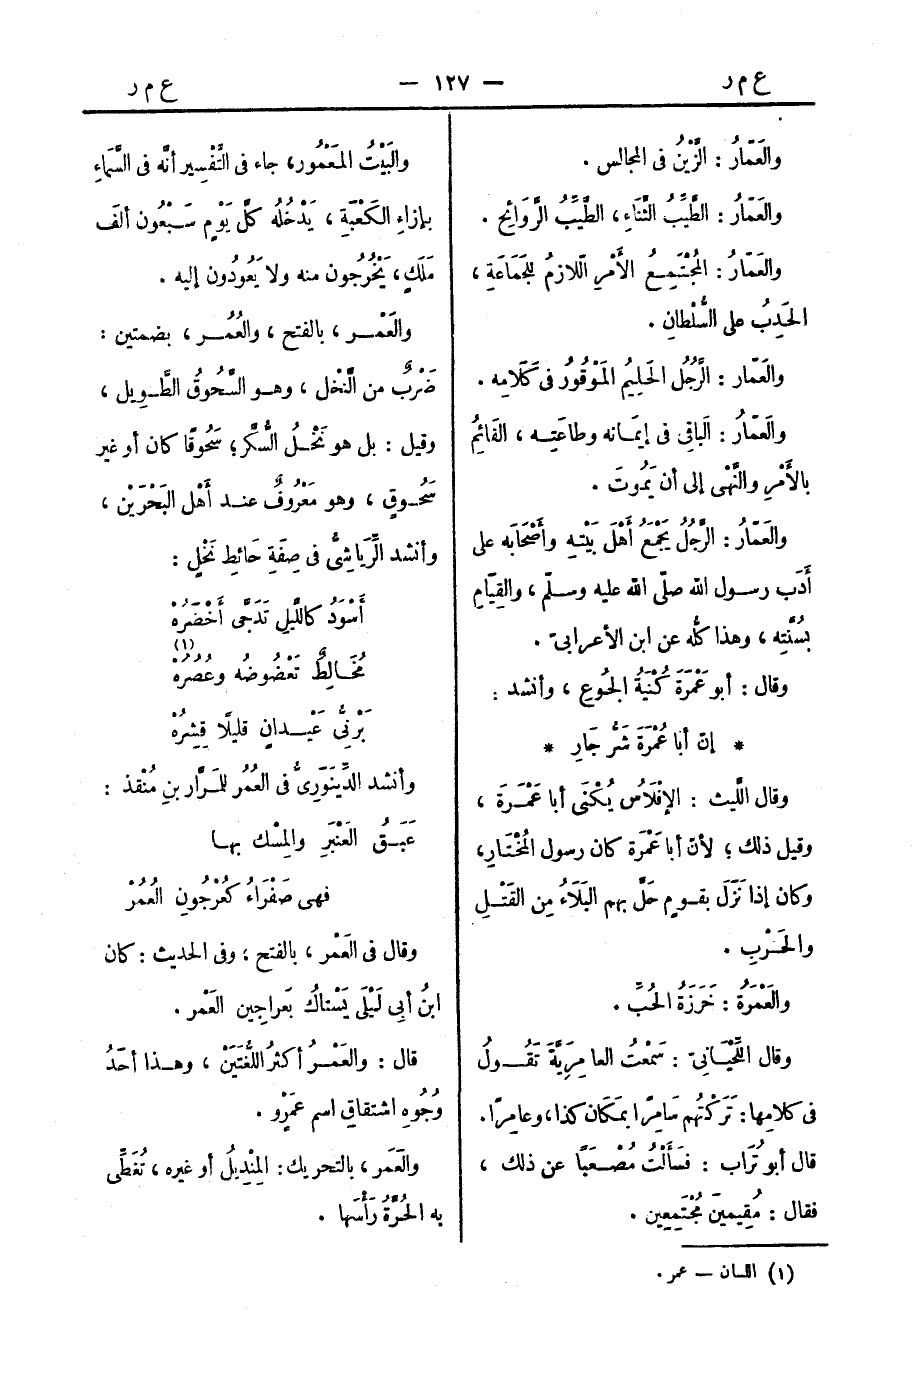 ع م ر — ١٢٧ — ع م ر
والعَمّارُ : الزَّيْنُ فى المجالس .
والعَمّارُ : الطَّيِّبُ الثَّنَاءِ ، الطَّيِّبُ الرَّوَائِح .
والعَمّارُ : المُجْتَمِـعُ الأَمْرِ اللازمُ لِلجَمَاعَةِ ،
الحَدِبُ على السُّلْطانِ .
والعَمّار : الرَّجُلُ الحَلِيمُ المَوْقُورُ فى كَلَامِه .
والعَمّارُ : البَاقِى فى إيمَانه وطاعَتِـه ، القائِمُ
بالأَمْرِ والنَّهْى إلى أن يَمُوتَ .
والعَمّارُ : الرَّجُلُ يَجْمَعُ أَهْلَ بَيْتِـهِ وأَصْحَابَه على
أَدَب رسـول الله صلّى الله عليه وسلّم ، والقِيَامِ
بسُنَّتِه ، وهذا كلُّه عن ابن الأعرابىّ .
وقال : أبو عَمْرَةَ كُنْيَةُ الجُوعِ ، وأنشد :
* إنّ أبا عَمْرَةَ شَرُّ جَارِ *
وقال اللَّيث : الإفْلَاسُ يُكْنَى أبا عَمْـرَةَ ،
وقيل ذلك ؛ لأنّ أبا عَمْرَة كان رسول المُخْتَارِ،
وكان إذا نَزَلَ بقـومٍ حَلَّ بهم البَلَاءُ مِن القَتْـلِ
والحَـرْبِ .
والعَمْرَةُ : خَرَزَةُ الحُبِّ .
وقال اللِّحْيَانِىّ : سَمِعْتُ العامِرِيَّةَ تَقُـولُ
فى كلامِها: تَرَكْتُهم سَامِرًا بمَكَان كذا،وعامِرًا.
قال أبو تُرَاب : فسَأَلْتُ مُصْـعَبًا عن ذلك ،
فقال : مُقِيمِينَ مُجْتَمِعِين .
(١) اللسان — عمر .
والبَيْتُ المَعْمُور، جاء فى التَّفْسِير أنَّه فى السَّمَاءِ
بإزاءِ الكَعْبَةِ ، يَدْخُلُه كلَّ يَوْمٍ سَـبْعُون ألفَ
مَلَكٍ، يَخْرُجُون منه ولا يَعُودُون إليه .
والعَمْـر ، بالفتح ، والعُمُـر ، بضمتين :
ضَرْبٌ من النَّخْل ، وهـو السَّحُوقُ الطَّـوِيل ،
وقيل : بل هو نَخْـلُ السُّكَّرِ؛ سَحُوقًا كان أو غير
سَحُـوقٍ ، وهو مَعْرُوفٌ عنـد أَهْل البَحْرَيْن ،
وأنشد الرِّيَاشِىُّ فى صِفَةِ حَائِط نَخْلٍ :
أَسْوَدُ كاللَّيلِ تَدَجَّى أَخْضَرُهْ
مُخَـالِطٌ تَعْضُوضُه وعُمُرُهْ (١)
بَرْنِىُّ عَيْـدانٍ قليلًا قِشِرُهْ
وأنشد الدِّينَوَرِىُّ فى العُمُر للمَـرَّار بنِ مُنْقذ :
عَبَـقُ العَنْبَرِ والمِسْك بهـا
فهى صَفْرَاءُ كعُرْجُونِ العُمُرْ
وقال فى العَمْر ، بالفتح ، وفى الحديث : كان
ابنُ أبى لَيْلَى يَسْتاكُ بَعَراجِين العَمْر .
قال : والعَمْـرُ أكثَرُ اللُّغَتَيْنِ ، وهـذا أَحَدُ
وُجُوهِ اشتقاقِ اسم عَمْرٍو .
والعَمَر ، بالتحريك: المِنْدِيلُ أو غيره ، تُغَطِّى
به الحُرَّةُ رَأْسَها .